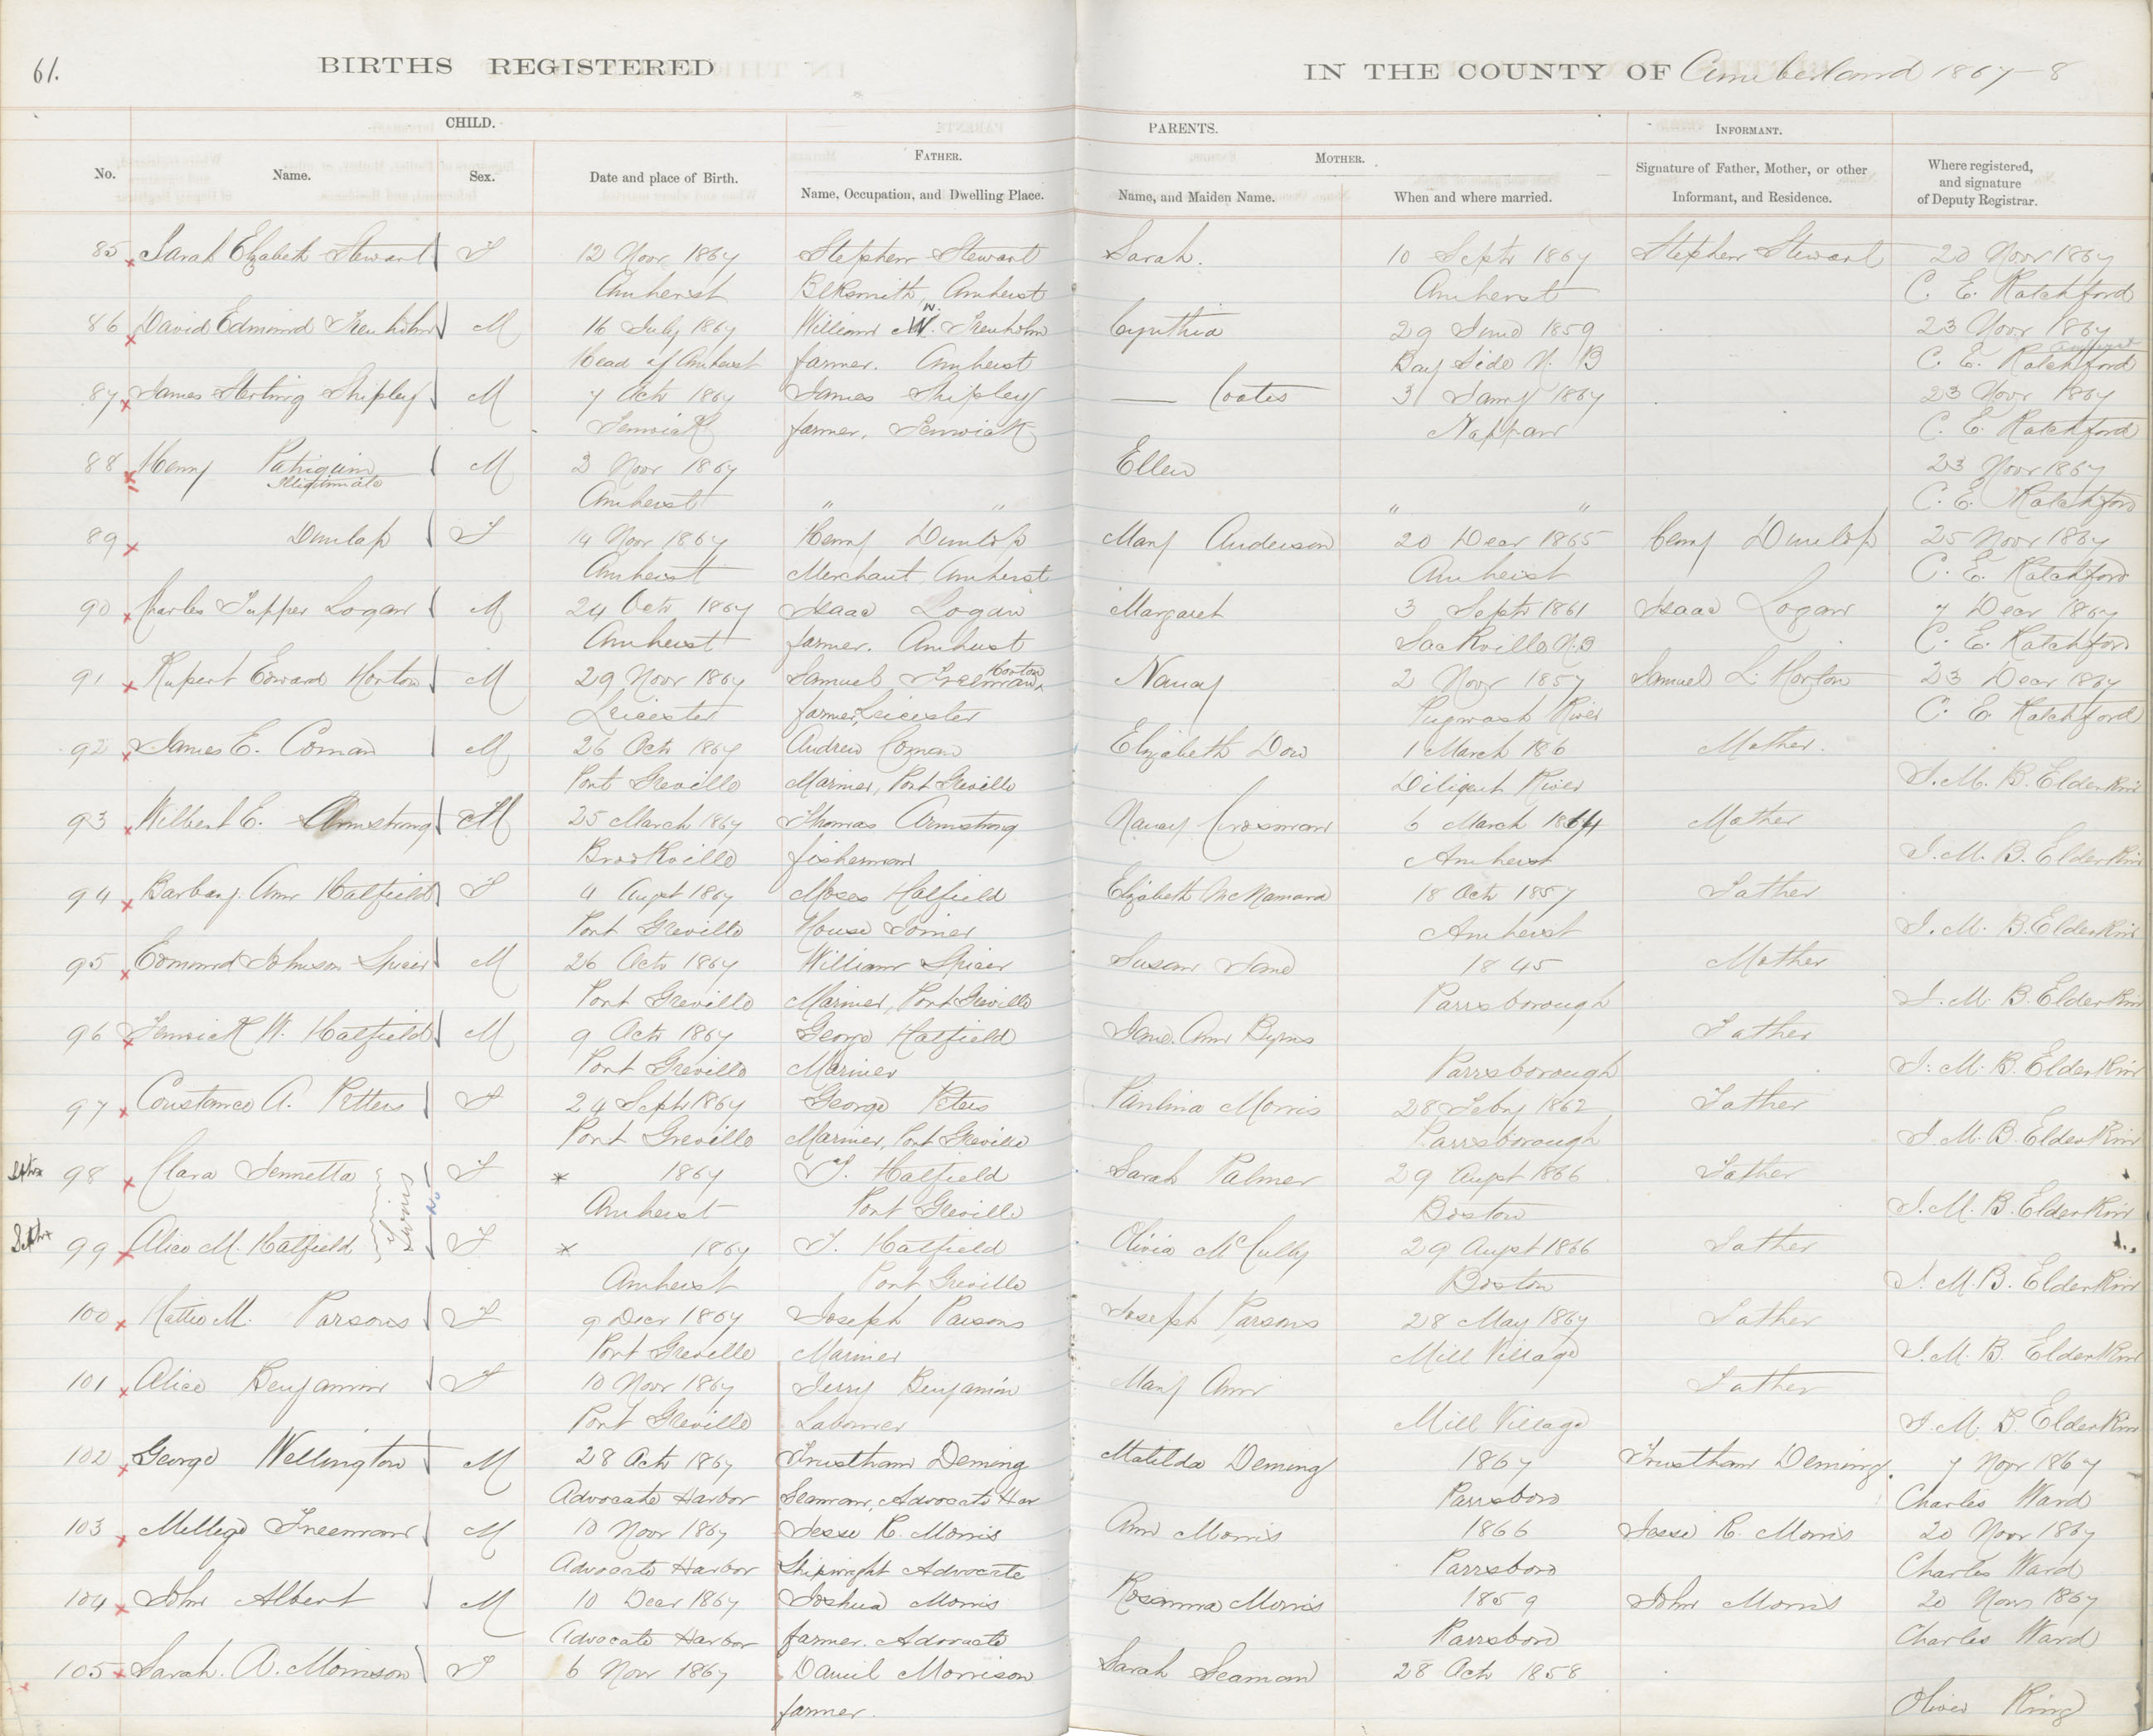 61.
BIRTHS REGISTERED IN THE COUNTY OF Cumberland 1867-8
CHILD. PARENTS. INFORMANT.
FATHER. MOTHER.
No. Name. Sex. Date and place of Birth. Name, Occupation, and Dwelling Place. Name, and Maiden Name. When and where married. Signature of Father, Mother, or other Informant, and Residence. Where registered, and signature of Deputy Registrar.
85 Sarah Elizabeth Stewart F 12 Novr 1867 Stephen Stewart Sarah. 10 Septr 1867 Stephen Stewart 20 Novr 1867
Amherst Blksmith, Amherst Amherst C. E. Ratchford
86 David Edmund Trenholm M 16 July 1867 William W. Trenholm Cynthia 29 June 1859 23 Novr 1867
Head of Amherst farmer. Amherst Bay Side N. B Amherst C. E. Ratchford
87 James Sterling Shipley M 7 Octr 1867 James Shipley — Coates 31 Jany 1867 23 Novr 1867
Fenwick farmer, Fenwick Nappan C. E. Ratchford
88 Henry Patriquin M 2 Novr 1867 Ellen 23 Novr 1867
Illigitimate Amherst " " " " C. E. Ratchford
89 Dunlap F 14 Novr 1867 Henry Dunlop Mary Anderson 20 Decr 1865 Henry Dunlop 25 Novr 1867
Amherst Merchant Amherst Amherst C. E. Ratchford
90 Charles Tupper Logan M 24 Octr 1867 Isaac Logan Margaret 3 Septr 1861 Isaac Logan 7 Decr 1867
Amherst farmer. Amherst Sackville N.B C. E. Ratchford
91 Rupert Edward Horton M 29 Novr 1867 Samuel Freeman Horton Nancy 2 Novr 1857 Samuel L. Horton 23 Decr 1867
Leicester farmer, Leicester Pugwash River C. E. Ratchford
92 James E. Coman M 26 Octr 1867 Andrew Coman Elizabeth Dow 1 March 186 Mother.
Port Greville Mariner, Port Greville Diligent River J. M. B. Elderkin
93 Wilbert E. Armstrong M 25 March 1867 Thomas Armstrong Nancy Crosman 6 March 1864 Mother
Brookville fisherman Amherst J. M. B. Elderkin
94 Barbary Ann Hatfield F 4 Augst 1867 Moses Hatfield Elizabeth McNamara 18 Octr 1857 Father
Port Greville House Joiner Amherst J. M. B. Elderkin
95 Edmund Johnson Spicer M 26 Octr 1867 William Spicer Susan Jane 1845 Mother
Port Greville Mariner, Port Greville Parrsborough J. M. B. Elderkin
96 Fenwick W. Hatfield M 9 Octr 1867 George Hatfield Jane Ann Byrns Father
Port Greville Mariner Parrsborough J. M. B. Elderkin
97 Constance A. Petters F 24 Septr 1867 George Peters Paulina Morris 28 Febry 1862 Father
Port Greville Mariner, Port Greville Parrsborough J. M. B. Elderkin
98 Clara Jennetta F * 1867 Hatfield Sarah Palmer 29 Augst 1866 Father
Twins No
Amherst Port Greville Boston J. M. B. Elderkin
99 Alice M. Hatfield F * 1867 Hatfield Olivia McCully 29 Augst 1866 Father
Amherst Port Greville Boston J. M. B. Elderkin
100 Hattie M. Parsons F 9 Decr 1867 Joseph Parsons Joseph Parsons 28 May 1867 Father
Port Greville Mariner Mill Village J. M. B. Elderkin
101 Alice Benjamin F 10 Novr 1867 Jerry Benjamin Mary Ann Father
Port Greville Labourer Mill Village J. M. B. Elderkin
102 George Wellington M 28 Octr 1867 Trustham Deming Matilda Deming 1867 Trustham Deming 7 Novr 1867
Advocate Harbor Seaman, Advocate Har Parrsboro Charles Ward
103 Milledge Freeman M 10 Novr 1867 Jesse R. Morris Ann Morris 1866 Jesse R. Morris 20 Novr 1867
Advocate Harbor Shipwright Advocate Parrsboro Charles Ward
104 John Albert M 10 Decr 1867 Joshua Morris Rosanna Morris 1859 John Morris 20 Novr 1867
Advocate Harbor farmer. Advocate Parrsboro Charles Ward
105 Sarah A. Morrison F 6 Novr 1867 Daniel Morrison Sarah Seaman 28 Octr 1858
farmer. Oliver King